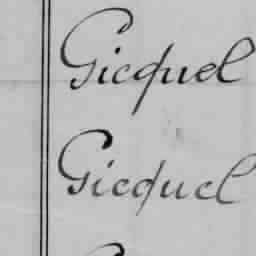 Gicquel
Gicquel